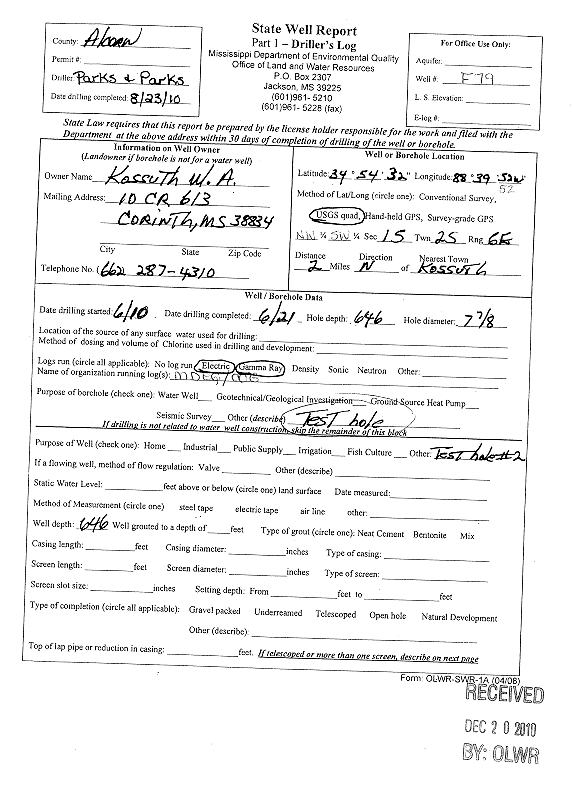 State Well Report
Part 1 – Driller's Log
Mississippi Department of Environmental Quality
Office of Land and Water Resources
P.O. Box 2307
Jackson, MS 39225
(601)961- 5210
(601)961- 5228 (fax)
County: Alcorn
Permit #:
Driller: Parks & Parks
Date drilling completed: 8/23/10
For Office Use Only:
Aquifer:
Well #: F79
L. S. Elevation:
E-log #:
State Law requires that this report be prepared by the license holder responsible for the work and filed with the
Department at the above address within 30 days of completion of drilling of the well or borehole.
Information on Well Owner
(Landowner if borehole is not for a water well)
Owner Name Kossuth W. A.
Mailing Address: 10 CR 613
Corinth, MS 38834
City State Zip Code
Telephone No. (662 287-4310
Well or Borehole Location
Latitude: 34 ° 54 ' 32" Longitude: 88 ° 39 '
52
Method of Lat/Long (circle one): Conventional Survey,
USGS quad, Hand-held GPS, Survey-grade GPS
NW ¼ SW ¼ Sec 15 Twn 2S Rng 6E
Distance Direction Nearest Town
2 Miles N of Kossuth
Well / Borehole Data
Date drilling started: 6/10 Date drilling completed: 6/21 Hole depth: 646 Hole diameter: 7 7/8
Location of the source of any surface water used for drilling:
Method of dosing and volume of Chlorine used in drilling and development:
Logs run (circle all applicable): No log run Electric Gamma Ray Density Sonic Neutron Other:
Name of organization running log(s): MDEQ/
Purpose of borehole (check one): Water Well Geotechnical/Geological Investigation Ground Source Heat Pump
Seismic Survey Other (describe) Test hole
If drilling is not related to water well construction, skip the remainder of this block
Purpose of Well (check one): Home Industrial Public Supply Irrigation Fish Culture Other: Test hole #2
If a flowing well, method of flow regulation: Valve Other (describe)
Static Water Level: feet above or below (circle one) land surface Date measured:
Method of Measurement (circle one) steel tape electric tape air line other:
Well depth: 646 Well grouted to a depth of feet Type of grout (circle one): Neat Cement Bentonite Mix
Casing length: feet Casing diameter: inches Type of casing:
Screen length: feet Screen diameter: inches Type of screen:
Screen slot size: inches Setting depth: From feet to feet
Type of completion (circle all applicable): Gravel packed Underreamed Telescoped Open hole Natural Development
Other (describe):
Top of lap pipe or reduction in casing: feet. If telescoped or more than one screen, describe on next page
Form: OLWR-SWR-1A (04/08)
RECEIVED
DEC 20 2010
BY: OLWR